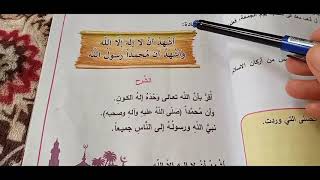 أشهد أن لا إله إلا الله
وأشهد أن محمداً رسول الله
الشرح
أُقرُّ بأن الله تعالى وحده إله الكون.
وأن محمداً (صلى الله عليه وآله وصحبه)
نبيُّ الله ورسولهُ إلى الناس جميعاً.
أشهد أن لا إله إلا الله
من أركان الاسلام
التي وردت.